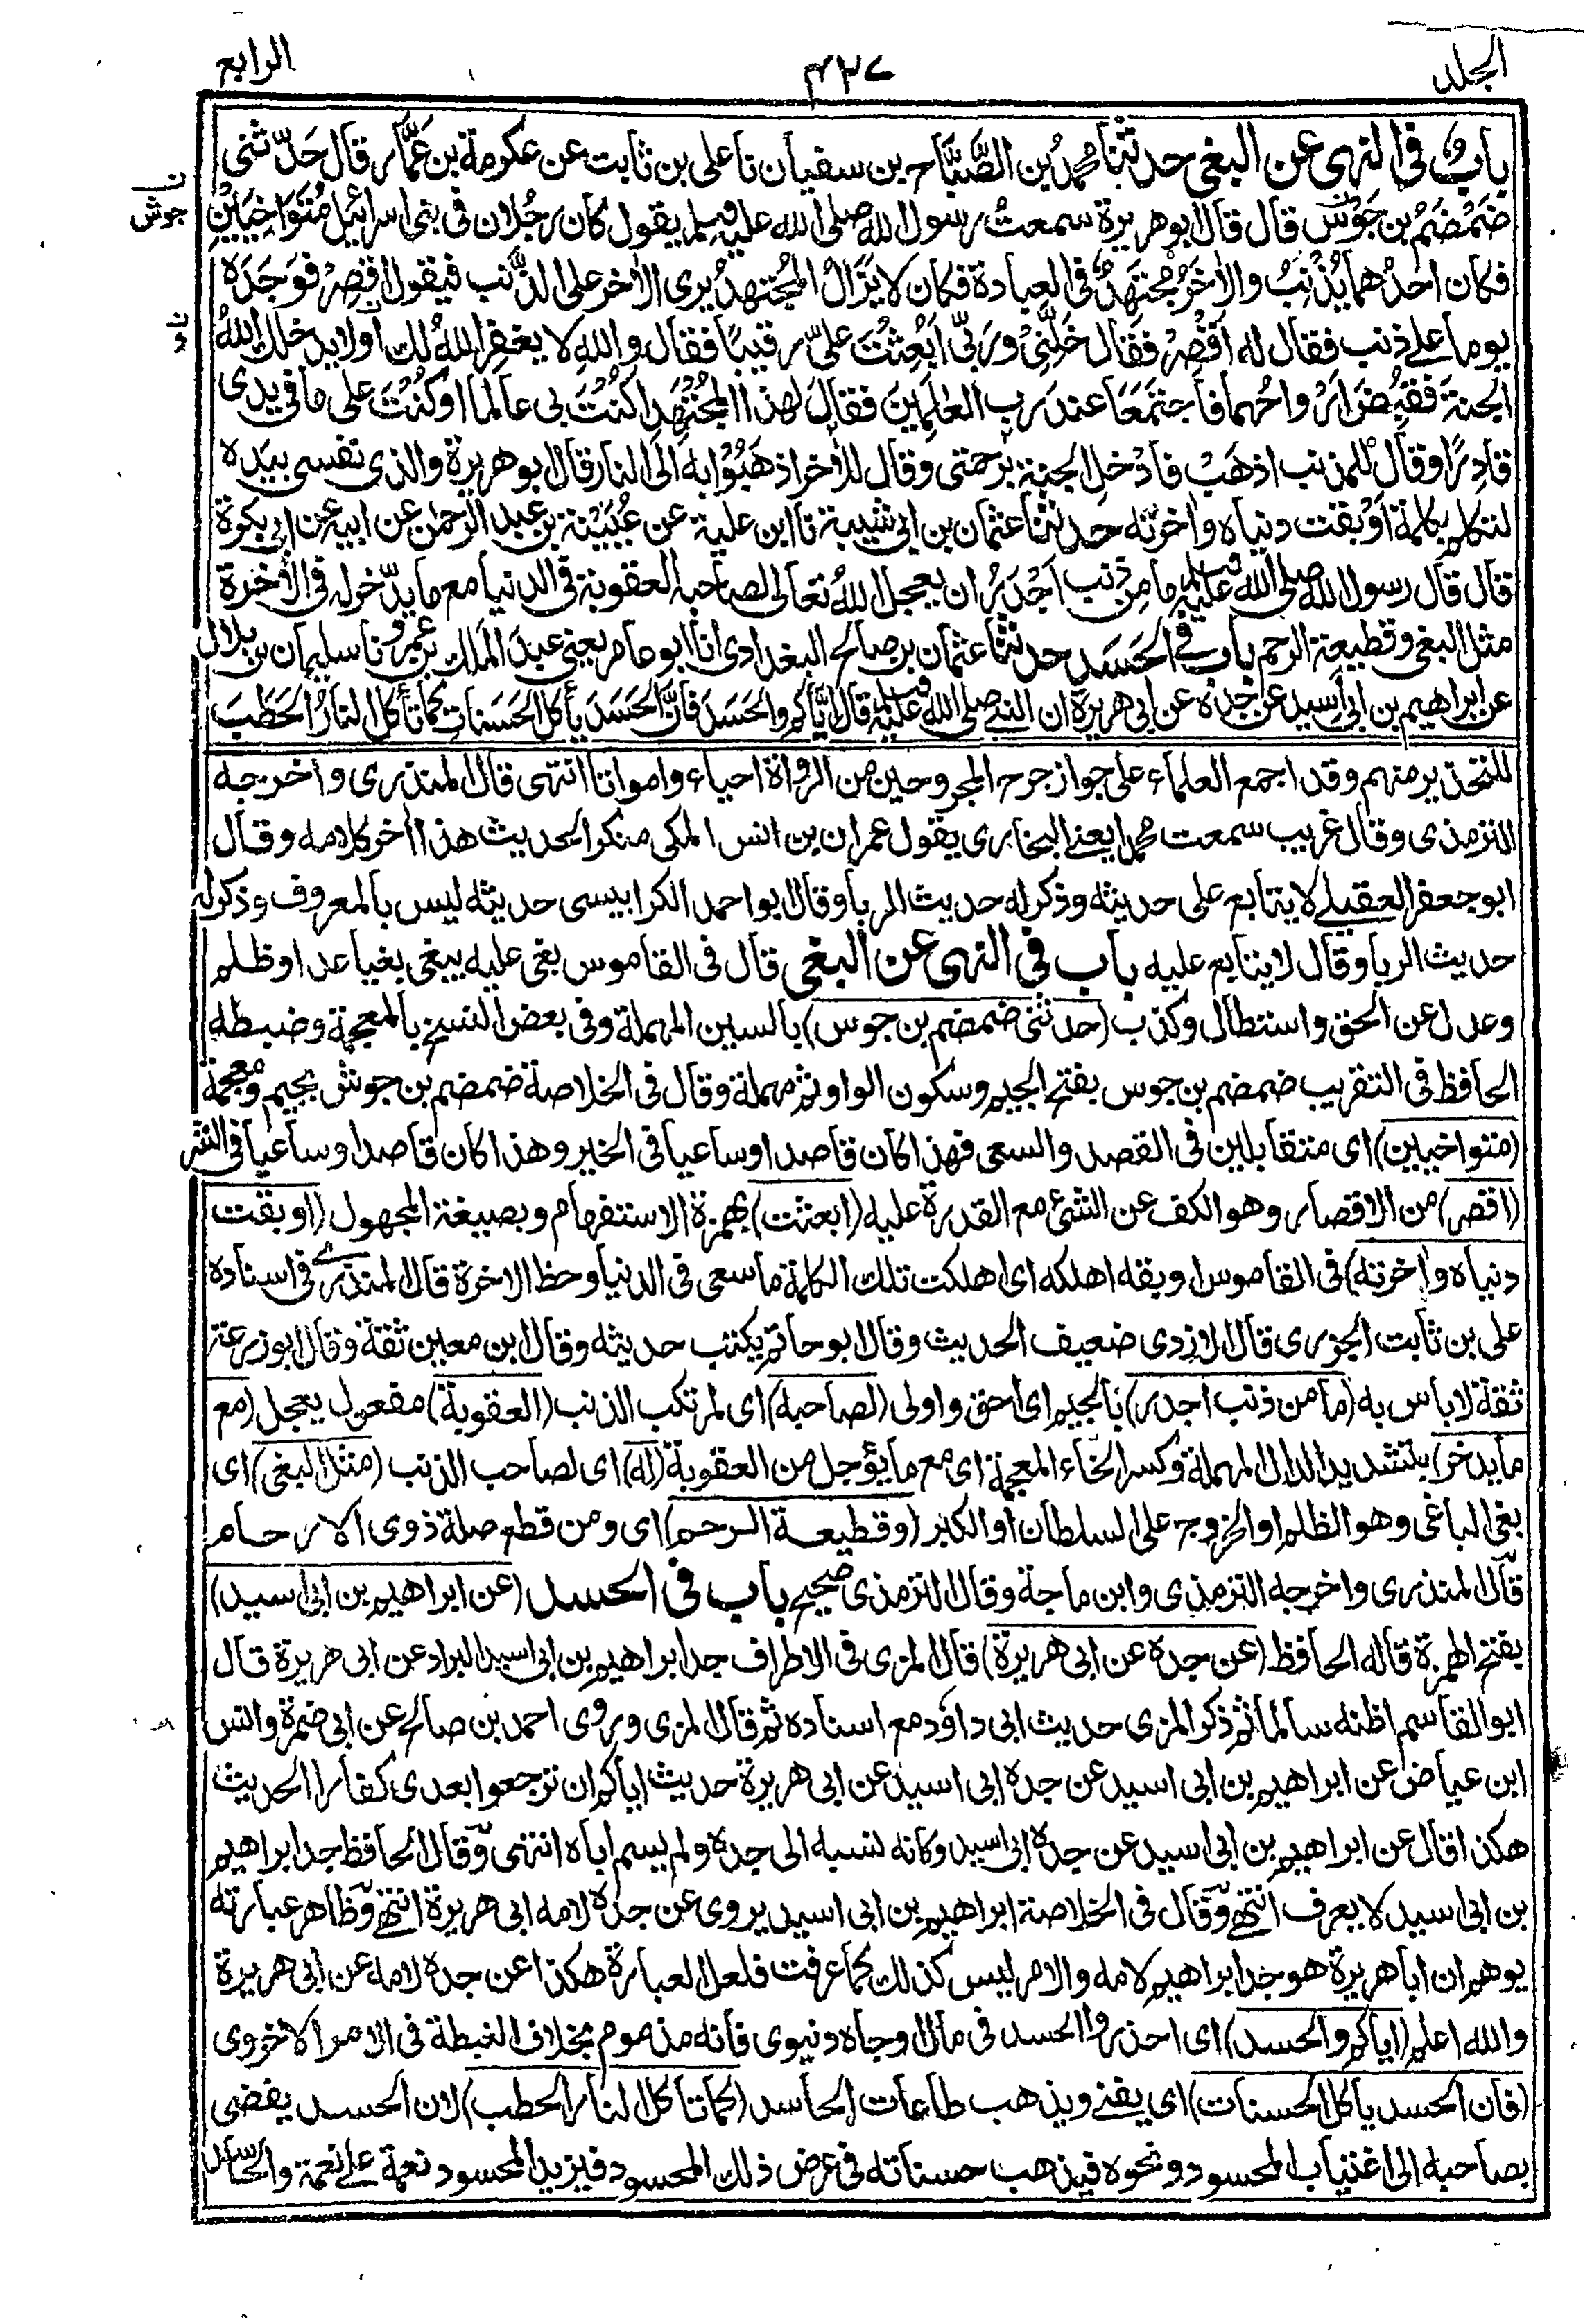 الجلد
٤٢٧
الرابع
باب في النهى عن البغى حدثنا محمد بن الصَّبَّاح بن سفيان نا على بن ثابت عن عكرمة بن عَمَّار قال حَدّثنى
ضَمْضَمُ بن جَوْس قال قال ابوهريرة سمعتُ رسول الله صلى الله عليه وسلم يقول كان رجُلان فى بنى اسرائيل مُتَوَاخِيَيْنِ
جوش
فكان احدُهما يُذْنِبُ والاٰخَرُ مُجْتَهِدٌ فى العبادة فكان لا يَزَالُ المُجْتهدُ يرى الاٰخر على الذَّنب فيقول اقصِرْ فوَجَدَه
يوما على ذنب فقال له اَقْصِرْ فقال خَلِّنِىْ ورَبِّى اَبُعِثْتَ علىّ رقيبًا فقال والله لا يغفرالله لك اولا يدخلك اللهُ
الجنة فقبُضَ اَرْواحُهما فاجتمَعَا عند رب العٰلَمِيْنَ فقال لهذا المُجْتَهِد اكُنْتَ بى عالما اوكُنْتَ على ما فى يدى
قادِرًا وقال للمذنب اذهَبْ فادْخلِ الجنة برحمتى وقال للاٰخر اذهَبُوْا به الَى النار قال ابوهريرة والذى نفسى بيَدِه
لتكلم بكلمة اَوْبقت دنياه واٰخرتَه حدثنا عثمان بن ابى شيبة نا ابن علية عن عُيَيْنة بن عبد الرحمٰن عن ابيه عن ابى بكرة
قال قال رسول الله صلى الله عليه وسلم ما مِن ذنب اَجْدَرُ ان يعجل اللهُ تعالٰى لصاحبه العقوبة فى الدنيا مع ما يدّخرله فى الاٰخرة
مثل البغى وقطيعة الرحم باب فى الحَسَد حدثنا عثمان بن صالح البغدادى انا ابوعامر يعنى عبدَ الملك بن عمرو نا سليمان بن بلال
عن ابراهيم بن ابى اَسيد عن جَدِّه عن ابى هريرة ان النبى صلى الله عليه وسلم قال اِيَّاكم والحَسَدَ فانَّ الحَسَدَ يأكل الحَسَنَاتِ كما تأكل النارُ الحَطَبَ
للتحذير منهم وقد اجمع العلماء على جواز جرح المجروحين من الرواة احياء وامواتا انتهى قال المنذرى واخرجه
الترمذى وقال غريب سمعت محمدا يعنى البخارى يقول عمران بن انس المكى منكر الحديث هذا اٰخر كلامه وقال
ابوجعفر العقيلى لا يتابع على حديثه وذكرله حديث الربا وقال ابواحمد الكرابيسى حديثه ليس بالمعروف وذكرله
حديث الربا وقال لا يتابع عليه باب فى النهى عن البغى قال فى القاموس بغى عليه يبغى بغيا عدا وظلم
وعدل عن الحق واستطال وكذب (حدثنى ضمضم بن جوس) بالسين المهملة وفى بعض النسخ بالمعجمة وضبطه
الحافظ فى التقريب ضمضم بن جوس بفتح الجيم وسكون الواو ثم مهملة وقال فى الخلاصة ضمضم بن جوش بجيم ومعجمة
(متواخيين) اى متقابلين فى القصد والسعى فهذا كان قاصدا وساعيا فى الخير وهذا كان قاصدا وساعيا فى الشر
(اقصر) من الاقصار وهو الكف عن الشئ مع القدرة عليه (ابعثت) بهمزة الاستفهام وبصيغة المجهول (اوبقت
دنياه واٰخرته) فى القاموس اوبقه اهلكه اى اهلكت تلك الكلمة ما سعى فى الدنيا وحظ الاخرة قال المنذرى فى اسناده
على بن ثابت الجزرى قال الازدى ضعيف الحديث وقال ابوحاتم يكتب حديثه وقال ابن معين ثقة وقال ابوزرعة
ثقة لا باس به (ما من ذنب اجدر) بالجيم اى احق واولى (لصاحبه) اى لمرتكب الذنب (العقوبة) مفعول يعجل (مع
ما يدخر) بتشديد الدال المهملة وكسر الخاء المعجمة اى مع ما يؤجل من العقوبة (له) اى لصاحب الذنب (مثل البغى) اى
بغى الباغى وهو الظلم او الخروج على السلطان او الكبر (وقطيعة الرحم) اى ومن قطع صلة ذوى الارحام
قال المنذرى واخرجه الترمذى وابن ماجة وقال الترمذى صحيح باب فى الحسد (عن ابراهيم بن ابى اسيد)
بفتح الهمزة قاله الحافظ (عن جده عن ابى هريرة) قال المزى فى الاطراف جد ابراهيم بن ابى اسيد البراد عن ابى هريرة قال
ابوالقاسم اظنه سالما ثم ذكر المزى حديث ابى داود مع اسناده ثم قال المزى وروى احمد بن صالح عن ابى ضمرة وانس
ابن عياض عن ابراهيم بن ابى اسيد عن جده ابى اسيد عن ابى هريرة حديث اياكم ان ترجعوا بعدى كفارا الحديث
هكذا قال عن ابراهيم بن ابى اسيد عن جده ابى اسيد وكانه نسبه الى جده ولم يسم اباه انتهى وقال الحافظ جد ابراهيم
بن ابى اسيد لا يعرف انتهى وقال فى الخلاصة ابراهيم بن ابى اسيد يروى عن جده لامه ابى هريرة انتهى وظاهر عبارته
يوهم ان ابا هريرة هو جد ابراهيم لامه والامر ليس كذلك كما عرفت فلعل العبارة هكذا عن جده لامه عن ابى هريرة
والله اعلم (اياكم والحسد) اى احذروا الحسد فى مال او جاه دنيوى فانه مذموم بخلاف الغبطة فى الامور الاخروى
(فان الحسد ياكل الحسنات) اى يفنى ويذهب طاعات الحاسد (كما تاكل النار الحطب) لان الحسد يفضى
بصاحبه الى اغتياب المحسود ونحوه فيذهب حسناته فى عرض ذلك المحسود فيزيد المحسود نعمة على نعمة والحاسد